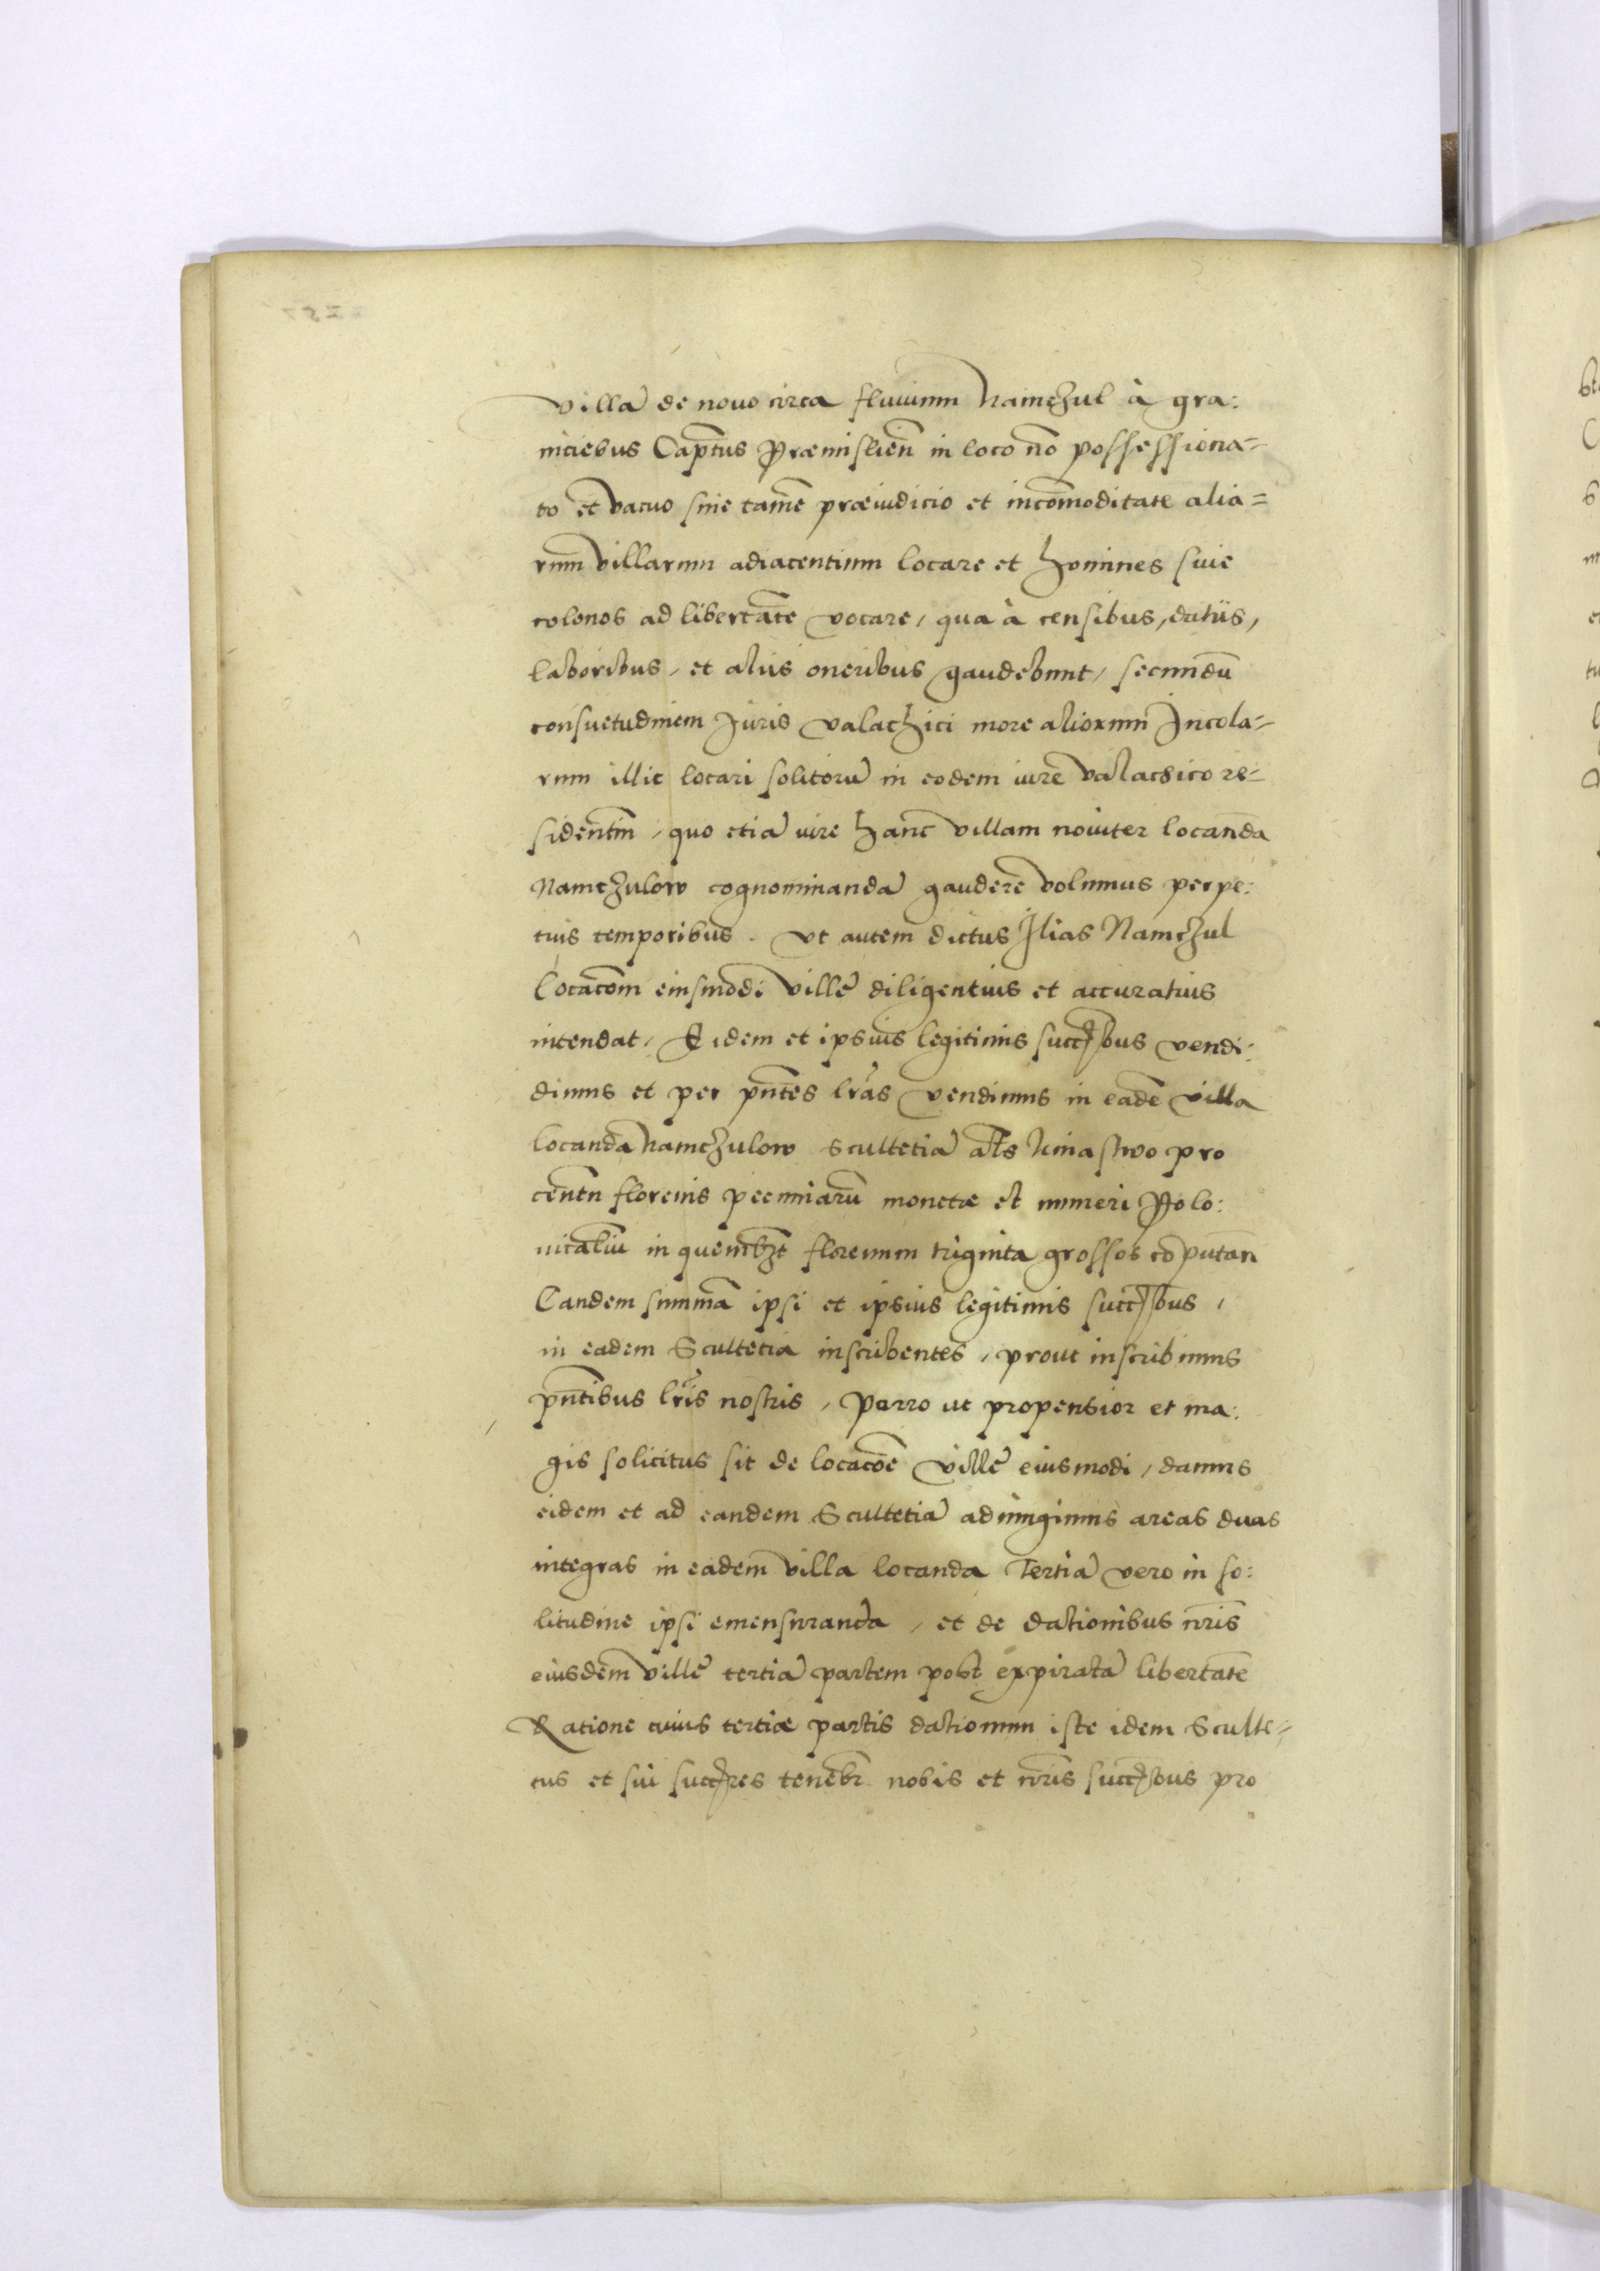 villā de nouo circa fluuium Namczul à gra:
niciebus Captūs Præmisliēn in loco nō possessiona=
to et vacuo sine tamē præiudicio et incōmoditate alia=
rum villarum adiacentium locare et homines siue
colonos ad libertatē vocare, qua à censibus, datiis,
laboribus, et aliis oneribus gaudebunt, secundū
consuetudinem Juris valachici more aliorum Incola=
rum illic locari solitorū in eodem iure valachico re=
sidentiū, quo etiā iure hanc villam nouiter locandā
Namczulow cognominandā gaudere volumus perpe:
tuis temporibus. Vt autem dictus Ilias Namczul
Locacōm eiusmodi villę diligentius et accuratius
intendat, Eidem et ipsius legitimis succꝭbus vendi:
dimus et per pn̄tes lr̄as vendimus in eadē villa
locanda Namczulow Scultetiā al̄s Kniastwo pro
centū florenis pecuniarū monetæ et numeri Polo:
nicaliū in quemlibet florenum triginta grossos cōputan̄
Eandem summā ipsi et ipsius legitimis succꝭbus,
in eadem Scultetia inscribentes, prout inscribimus
pn̄tibus lr̄is nostris, Porro ut propensior et ma:
gis solicitus sit de locacōe villę eiusmodi, damus
eidem et ad eandem Scultetiā adiungimus areas duas
integras in eadem villa locanda Tertiā vero in so:
litudine ipsi emensuranda, et de dationibus nr̄is
eiusdem villę tertiā partem post expiratā libertatē
Ratione cuius tertiæ partis dationum iste idem Sculte=
tus et sui succꝭres tenebr̄ nobis et nr̄is succꝭbus pro